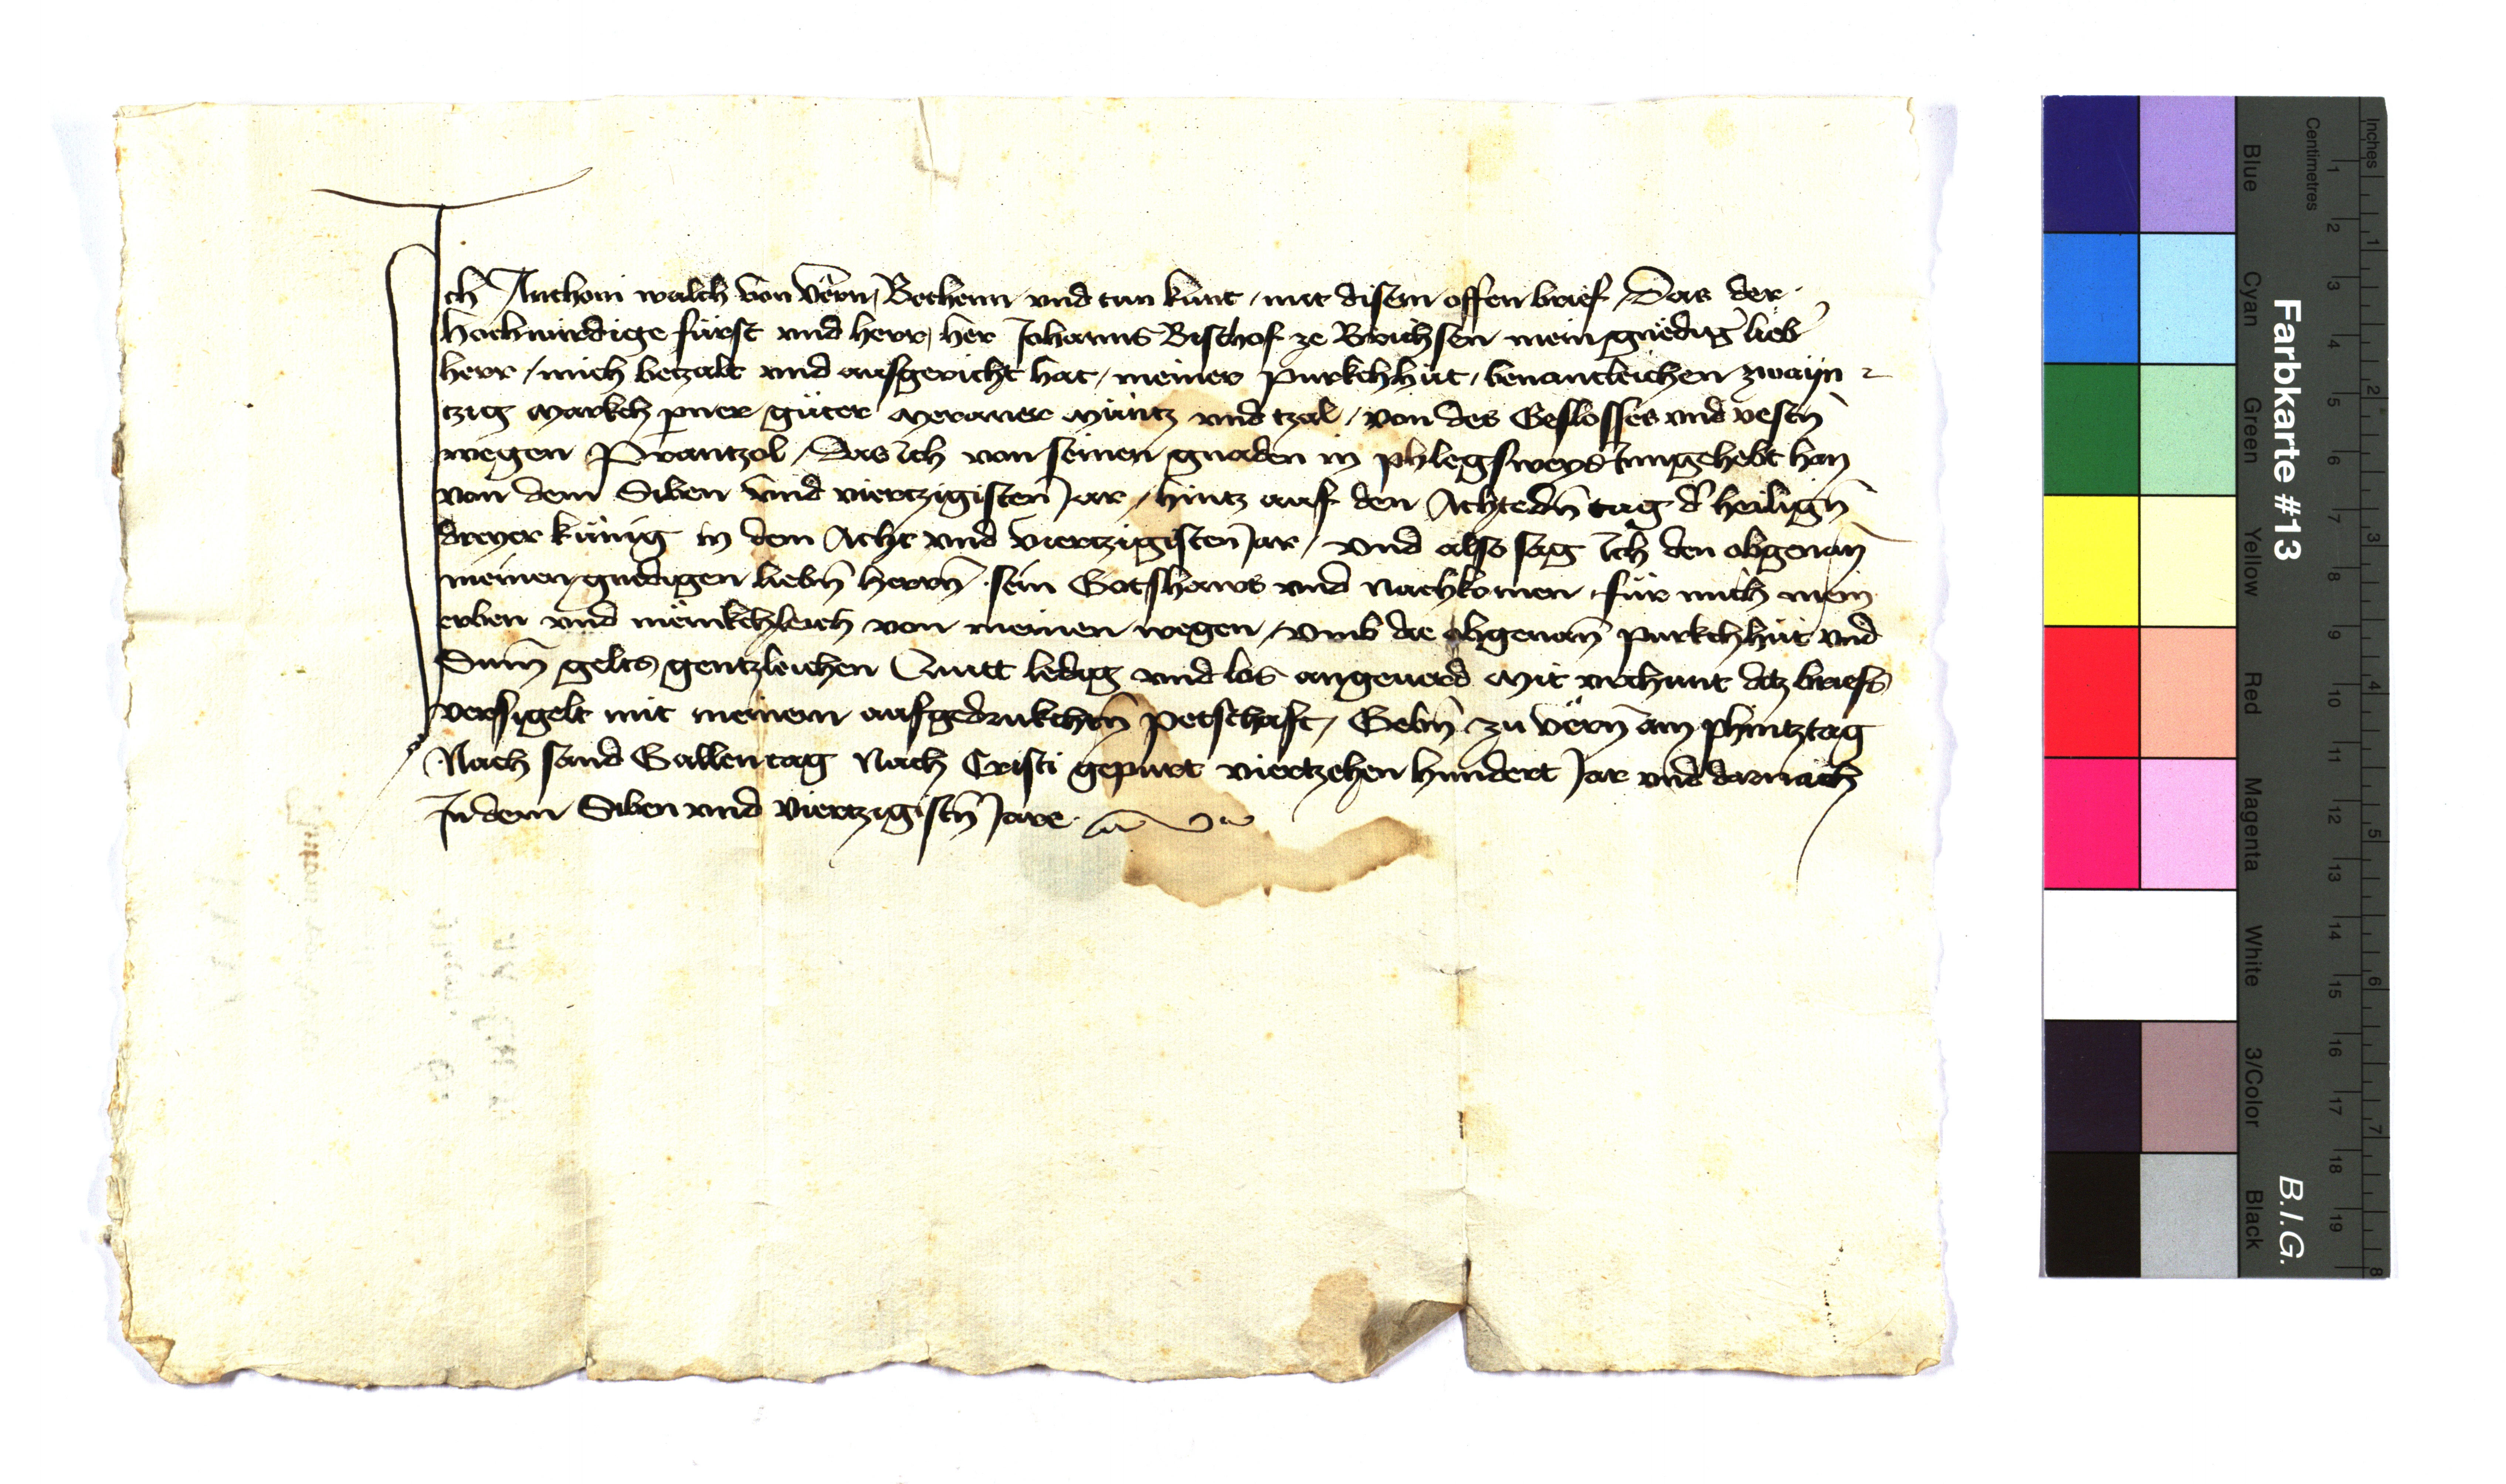 Ich Anthoni walch von Vërn, Bechenn und tun kunt / mit disem offen brief / Das der
hochwirdige fürst und herr, her Johanns Bischof ze Brichsen mein gnëdig lieb
herr / mich betzalt und ausgericht hat / meiner purkchhut / benantleichen zwayn
tzig markch perner guter meraner münitz und tzal / von des Geslosses und vestn̄
wegen Prantzol / Das ich von seinen gnaden in phlegsweys Inngehebt han
von dem Siben und viertzigisten Jar / hintz auf den Achtedn̄ tag d' heilign̄
dreyer künig in dem Acht und viertzigisten Jar / und also sag ich den obgenan̄
meinen gnedigen liebn̄ herrn̄ sein Gotshaws und Nachkomen für mich mein
erben und mënikchleich von meinen wegen / umb die obgenan̄ purkchhut und
Sum̄ gelts gentzleichen Quitt ledig und los angeuerd mit urchunt ditz briefs
versigelt mit meinem aufgedrukchtn̄ petschaft / Gebn̄ zu vërn̄ am phintztag
Nach sand Gallen tag Nach Cristi gepurt viertzehen hundert Jar und darnach
In dem Siben und viertzigistn̄ Jare
Farbkarte #13
B.I.G.
Inches
Centimetres
1 2 3 4 5 6 7 8 9 10 11 12 13 14 15 16 17 18 19
1 2 3 4 5 6 7 8
Blue
Cyan
Green
Yellow
Red
Magenta
White
3/Color
Black